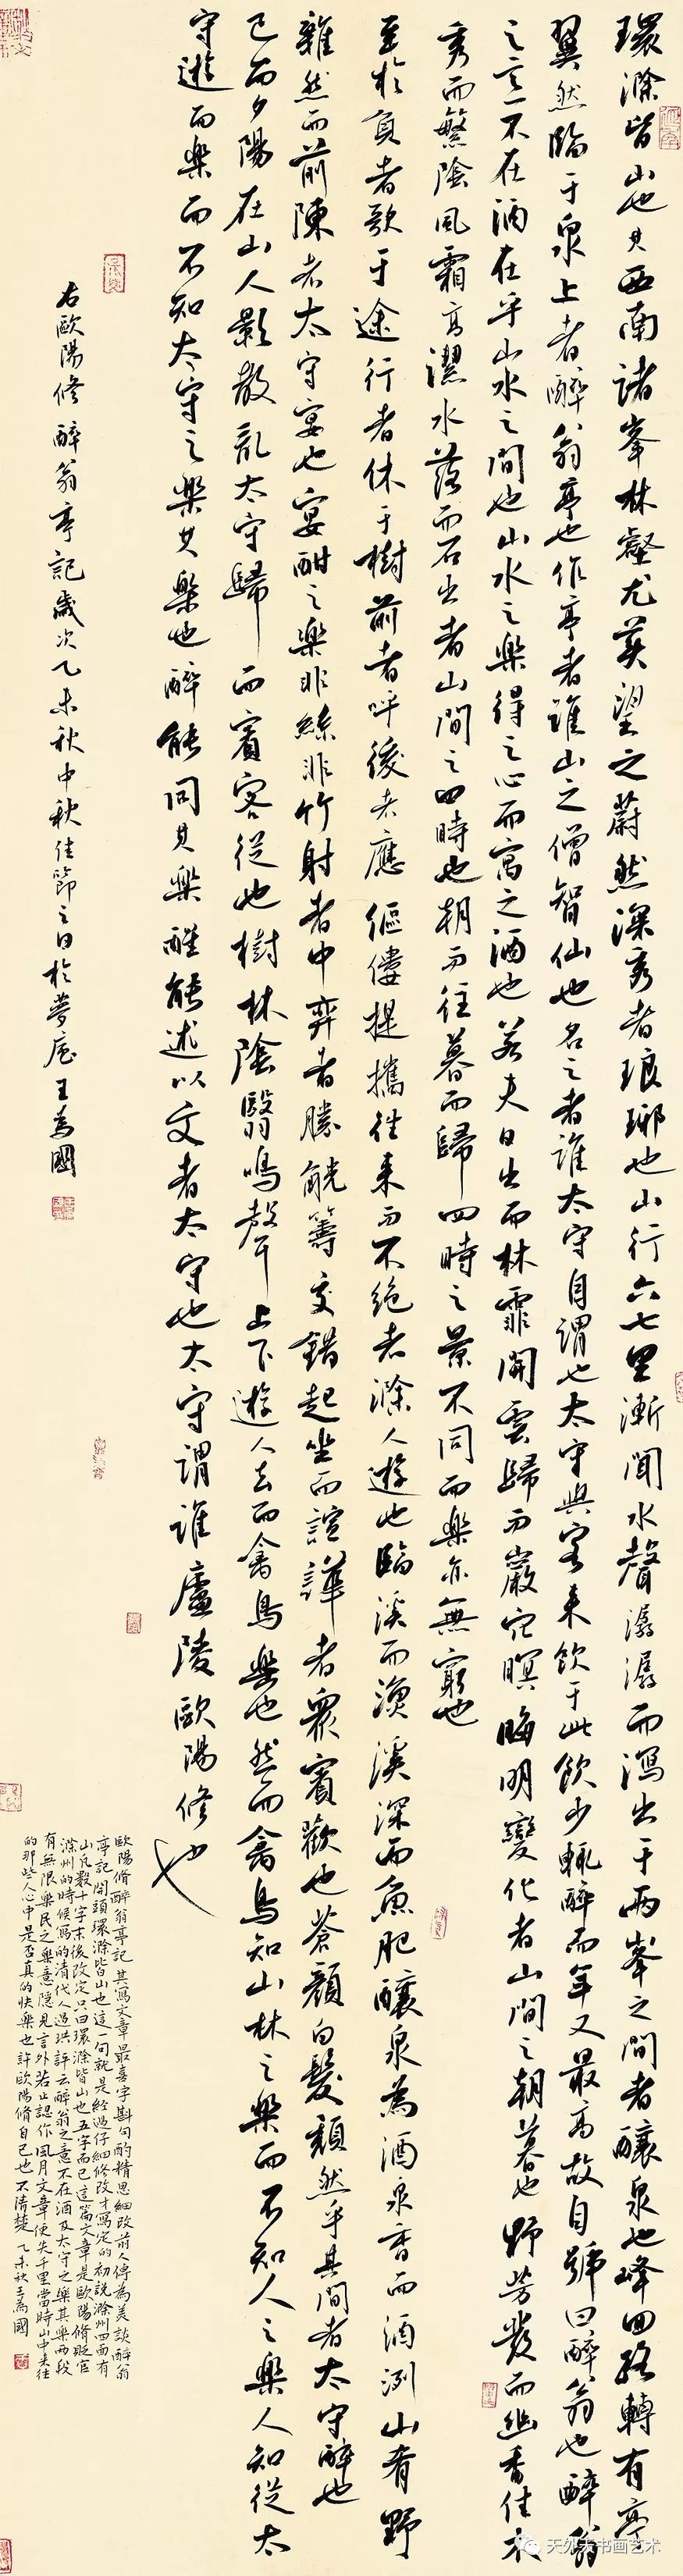 環滁皆山也其西南諸峯林壑尤美望之蔚然深秀者琅琊也山行六七里漸聞水聲潺潺而瀉出于兩峯之間者釀泉也峰回路轉有亭
翼然臨于泉上者醉翁亭也作亭者誰山之僧智仙也名之者誰太守自謂也太守與客來飲于此飲少輒醉而年又最高故自號曰醉翁也醉翁
之意不在酒在乎山水之間也山水之樂得之心而寓之酒也若夫日出而林霏開雲歸而巖穴暝晦明變化者山間之朝暮也野芳發而幽香佳木
秀而繁陰風霜高潔水落而石出者山間之四時也朝而往暮而歸四時之景不同而樂亦無窮也
至於負者歌于途行者休于樹前者呼後者應傴僂提攜往來而不絶者滁人遊也臨溪而漁溪深而魚肥釀泉為酒泉香而酒洌山肴野
雜然而前陳者太守宴也宴酣之樂非絲非竹射者中弈者勝觥籌交錯起坐而諠譁者衆賓歡也蒼顏白髮頹然乎其間者太守醉也
已而夕陽在山人影散亂太守歸而賓客從也樹林陰翳鳴聲上下遊人去而禽鳥樂也然而禽鳥知山林之樂而不知人之樂人知從太
守遊而樂而不知太守之樂其樂也醉能同其樂醒能述以文者太守也太守謂誰廬陵歐陽修也
右歐陽修醉翁亭記歲次乙未秋中秋佳節之日於夢庵王為國
歐陽脩醉翁亭記其寫文章最喜字斟句酌精思細改前人傳為美談醉翁
亭記開頭環滁皆山也這一句就是經過仔細修改才寫定的初說滁州四面有
山凡數十字末後改定只曰環滁皆山也五字而已這篇文章是歐陽脩貶官
滁州的時候寫的清代人過珙評云醉翁之意不在酒及太守之樂其樂兩段
有無限樂民之樂意隱見言外若止認作風月文章便失千里當時山中來往
的那些人心中是否真的快樂也許歐陽脩自己也不清楚乙未秋王為國
天外天书画艺术